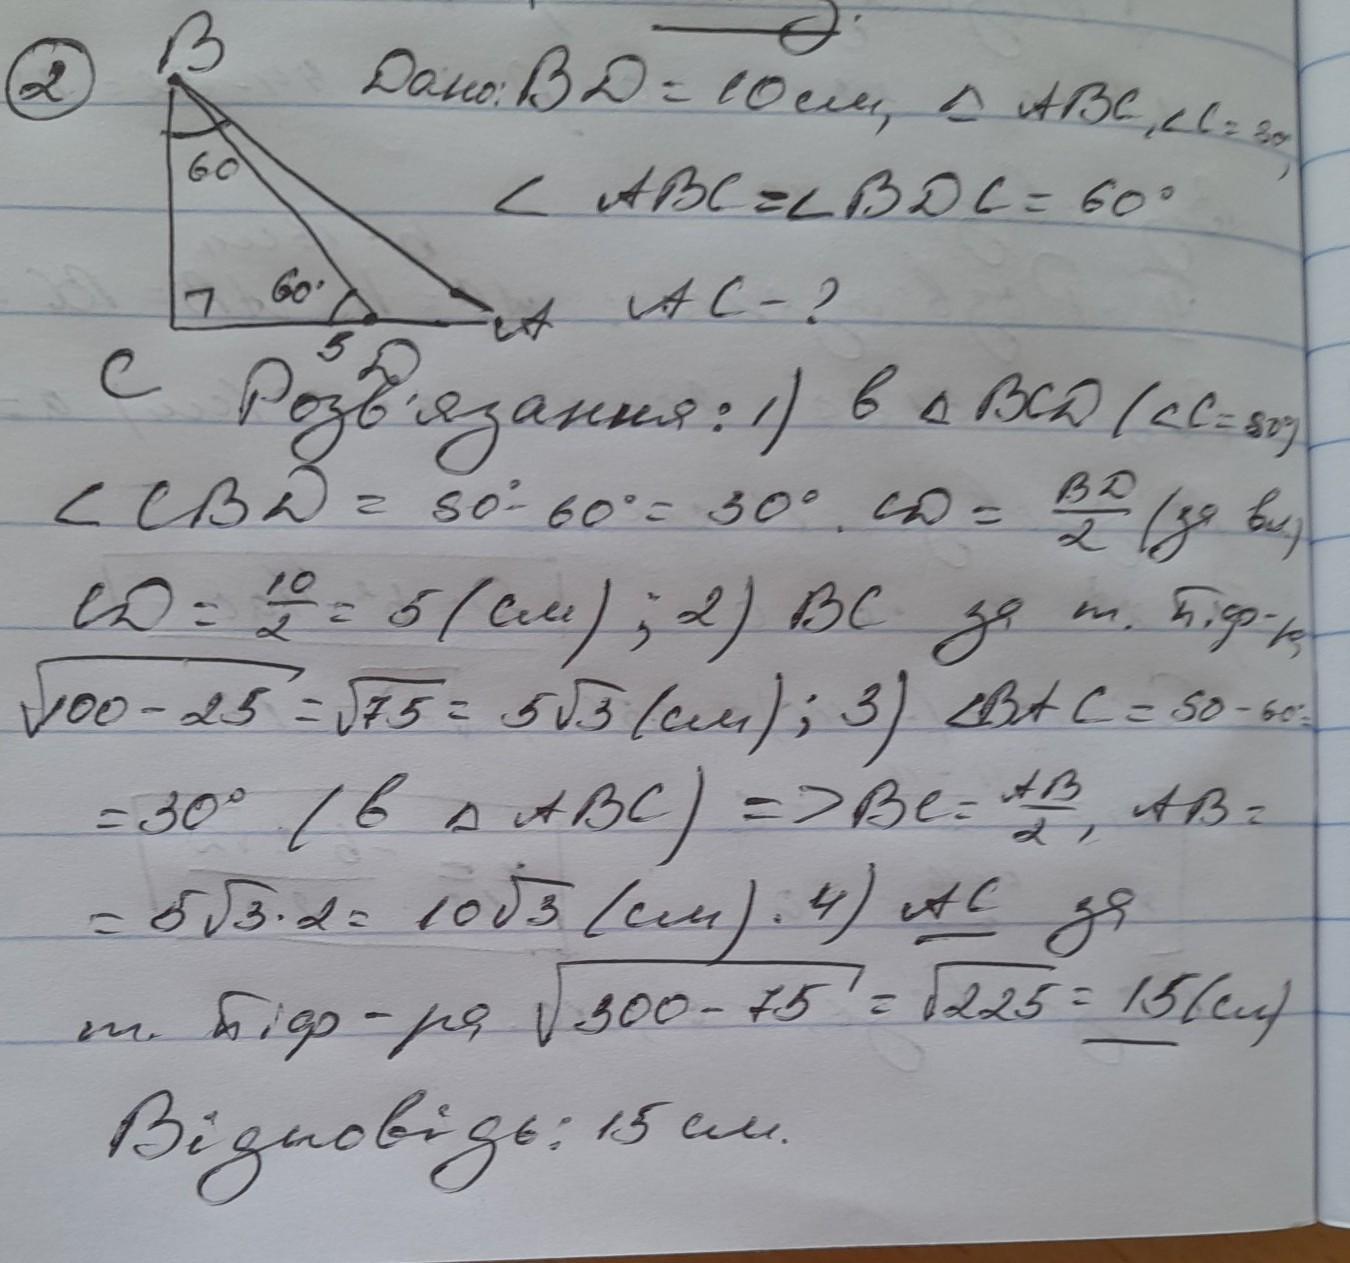 2 B Дано: BD = 10 см, △ ABC, ∠C = 90°,
60 ∠ ABC = ∠BDC = 60°
60° A AC - ?
C 5 D
Розв'язання: 1) в △ BCD (∠C = 90°)
∠ CBD = 90° - 60° = 30°. CD = BD/2 (за вл.)
CD = 10/2 = 5 (см); 2) BC за т. Піф-ра
√100 - 25 = √75 = 5√3 (см); 3) ∠BAC = 90 - 60° =
= 30° (в △ ABC) => BC = AB/2, AB =
= 5√3 · 2 = 10√3 (см). 4) AC за
т. Піф-ра √300 - 75 = √225 = 15 (см)
Відповідь: 15 см.